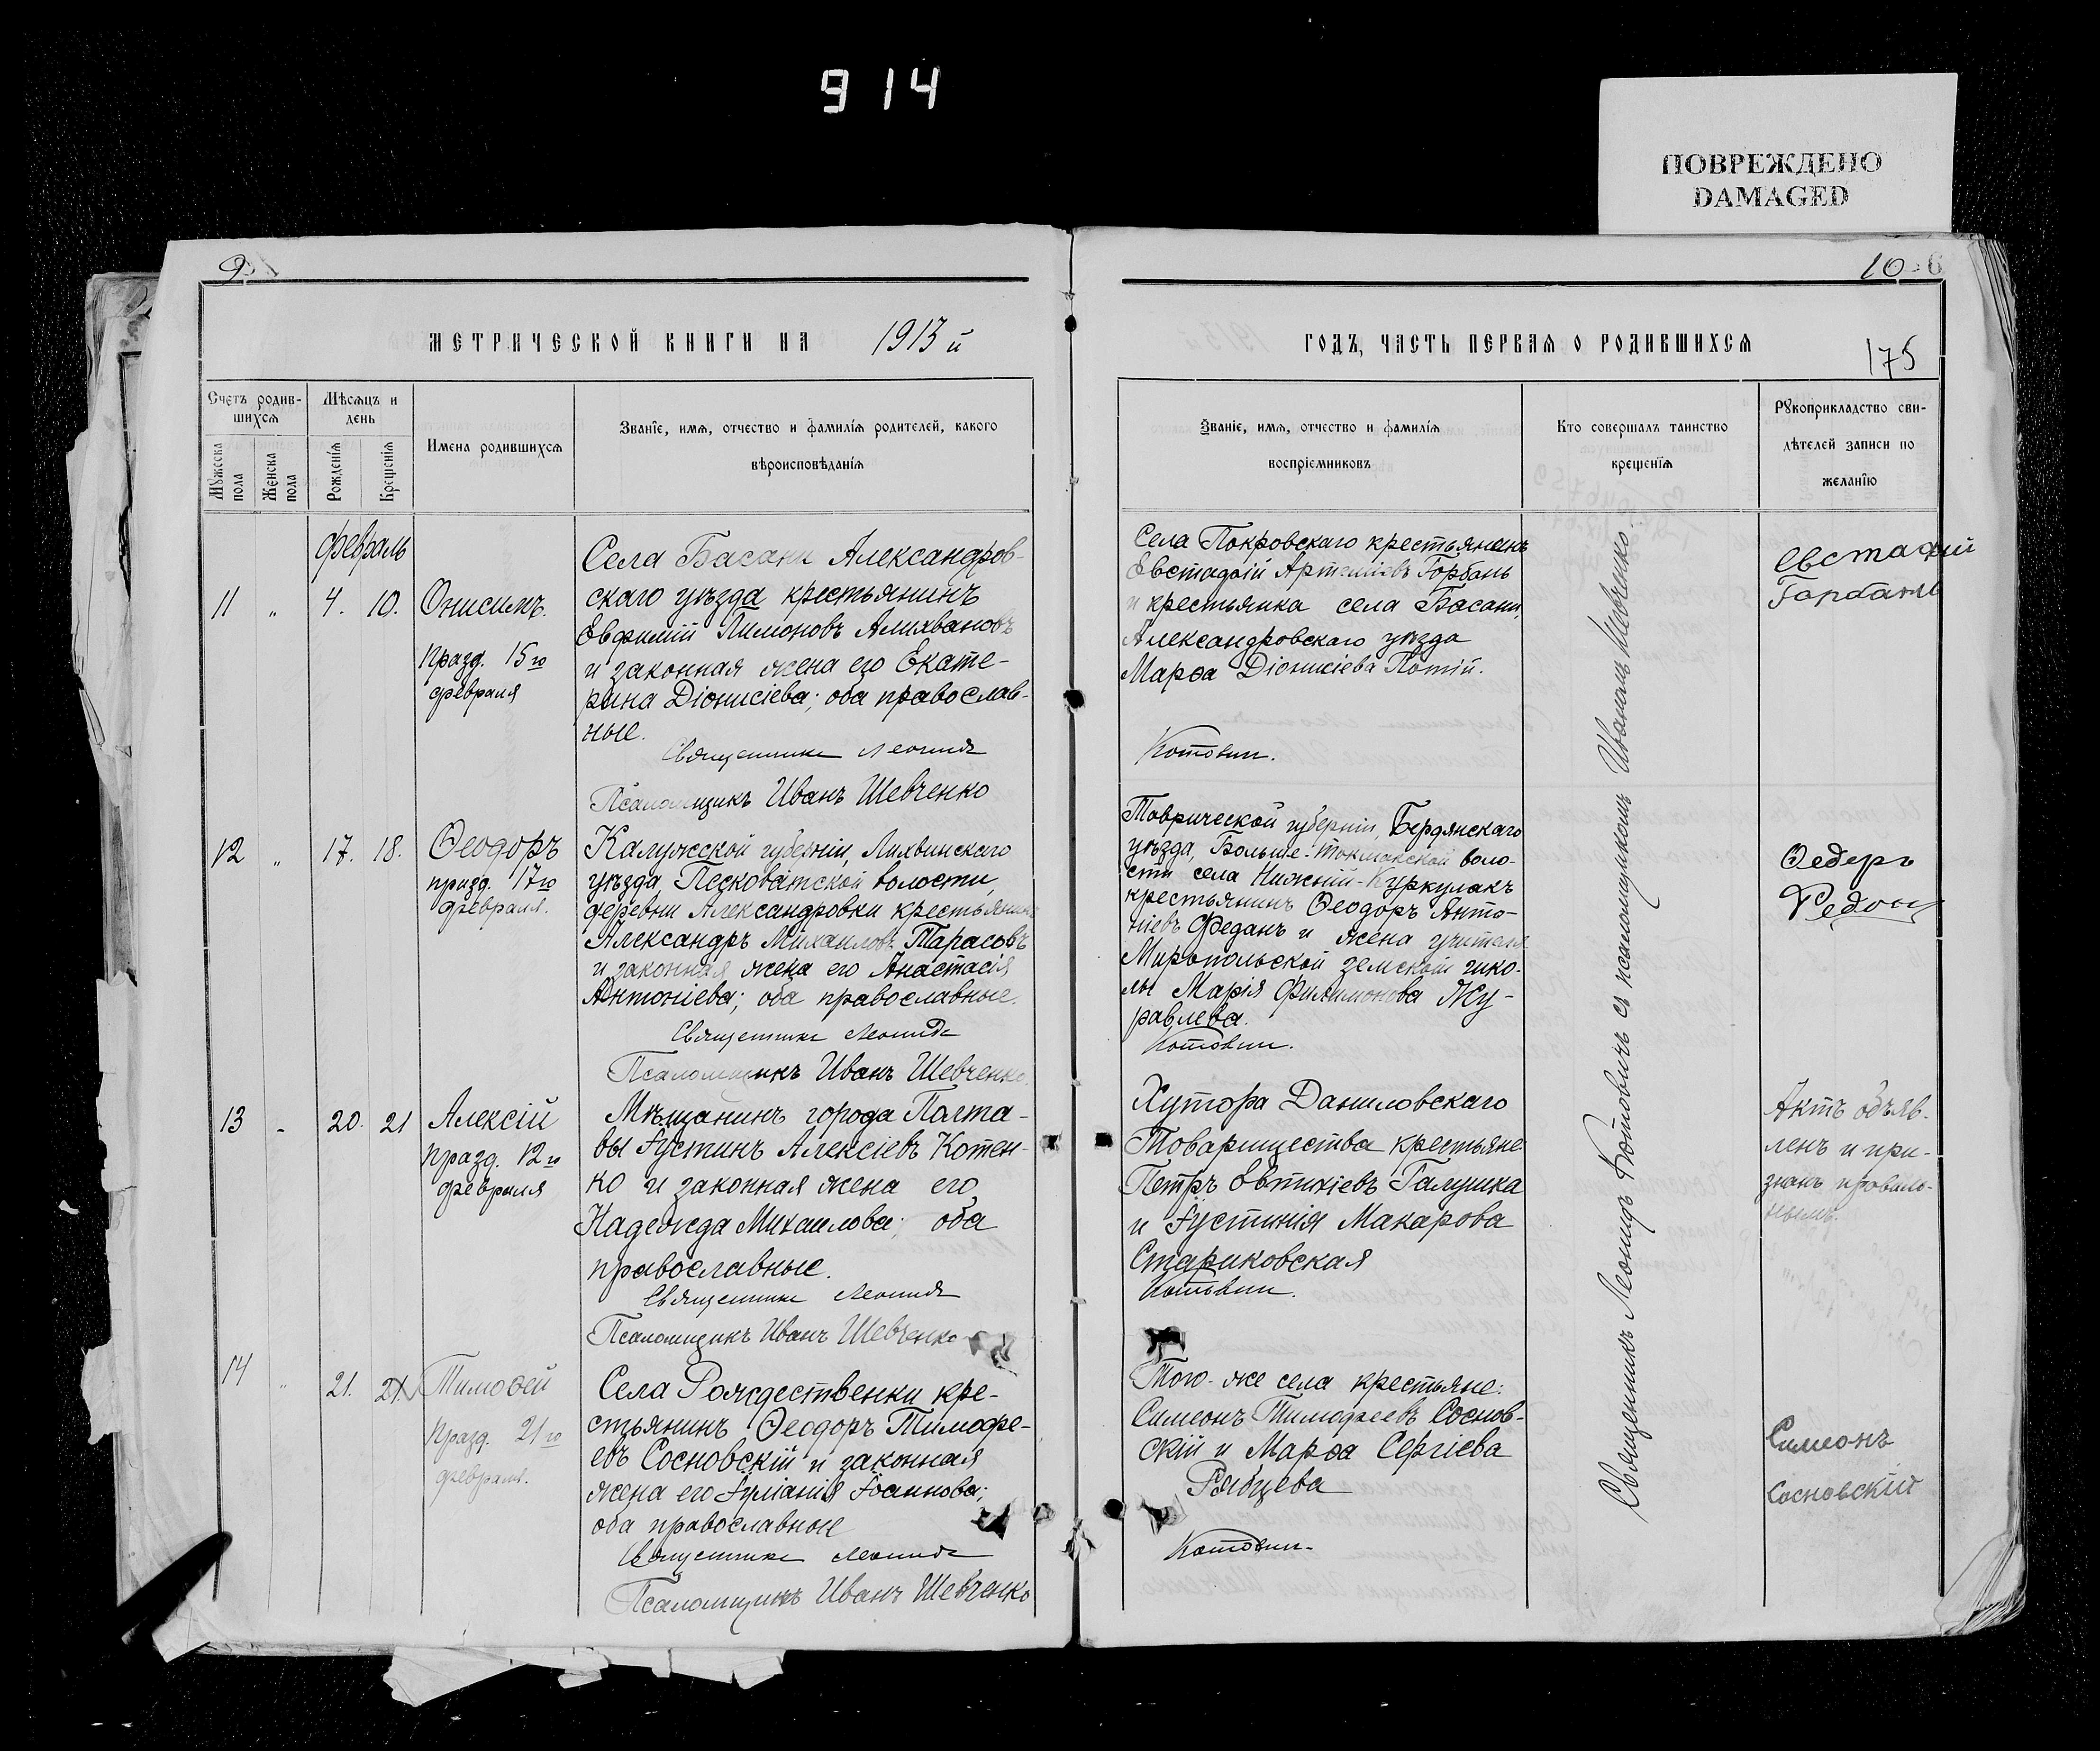 914
ПОВРЕЖДЕНО
DAMAGED
9
МЕТРИЧЕСКОЙ КНИГИ НА 1913 й
Счетъ родив-
шихся
Мужеска
пола
Женска
пола
Мѣсяцъ и
день
Рожденія
Крещенія
Имена родившихся
Званіе, имя, отчество и фамилія родителей, какого
вѣроисповѣданія
Февраль
11 " 4. 10.
Онисимъ.
празд. 15го
февраля
Села Басани Александров-
скаго уѣзда крестьянинъ
Евфимій Лимоновъ Алихвановъ
и законная жена его Екате-
рина Діонисіева; оба православ-
ные.
Священникъ Леонидъ
Псаломщикъ Иванъ Шевченко
12 " 17. 18.
Ѳеодоръ
празд. 17го
февраля.
Калужской губерніи, Лихвинскаго
уѣзда, Песковатской волости,
деревни Александровки крестьянинъ
Александръ Михаиловъ Тарасовъ
и законная жена его Анастасія
Антоніева; оба православные.
Священникъ Леонидъ
Псаломщикъ Иванъ Шевченко.
13 " 20. 21
Алексій
празд. 12го
февраля
Мѣщанинъ города Полта-
вы Іустинъ Алексіевъ Котен-
ко и законная жена его
Надежда Михаилова; оба
православные.
Священникъ Леонидъ
Псаломщикъ Иванъ Шевченко
14 " 21. 21.
Тимоѳей
празд. 21го
февраля.
Села Рождественки кре-
стьянинъ Ѳеодоръ Тимофе-
евъ Сосновскій и законная
жена его Іуліанія Іоаннова;
оба православные
Священникъ Леонидъ
Псаломщикъ Иванъ Шевченко
10 6
ГОДЪ, ЧАСТЬ ПЕРВАЯ О РОДИВШИХСЯ
175
Званіе, имя, отчество и фамилія
воспріемниковъ
Кто совершалъ таинство
крещенія
Рукоприкладство сви-
дѣтелей записи по
желанію
Села Покровскаго крестьянинъ
Евстафій Артеміевъ Горбань
и крестьянка села Басани,
Александровскаго уѣзда
Марѳа Діонисіева Потій.
Котовичъ.
Евстафій
Горбань
Таврической губерніи, Бердянскаго
уѣзда, Больше-Токмакской воло-
сти села Нижній-Куркулакъ
крестьянинъ Ѳеодоръ Анто-
ніевъ Феданъ и жена учителя
Миропольской земской шко-
лы Марія Филимонова Жу-
равлева.
Котовичъ.
Ѳедеръ
Хутора Даниловскаго
Товарищества крестьяне
Петръ Евтихіевъ Галушка
и Іустинія Макарова
Стариковская
Котовичъ.
Актъ объяв-
ленъ и при-
знанъ правиль-
нымъ.
Того-же села крестьяне:
Симеонъ Тимофеевъ Соснов-
скій и Марѳа Сергіева
Рябцева
Котовичъ.
Симеонъ
Сосновскій
Священникъ Леонидъ Котовичъ съ псаломщикомъ Иваномъ Шевченко.